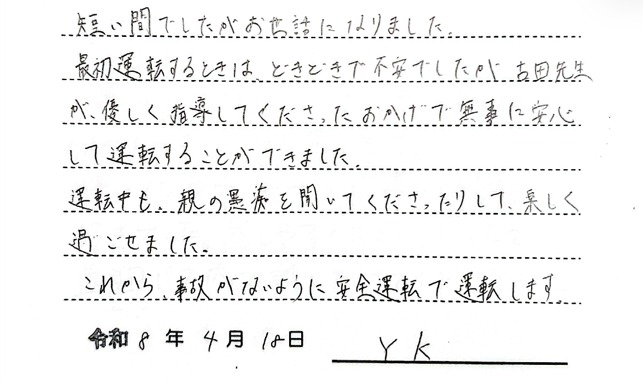 短い間でしたがお世話になりました。
最初運転するときは、どきどきで不安でしたが古田先生
が、優しく指導してくださったおかげで無事に安心
して運転することができました。
運転中も、親の愚痴を聞いてくださったりして、楽しく
過ごせました。
これから、事故がないように安全運転で運転します。
令和8年4月18日 YK